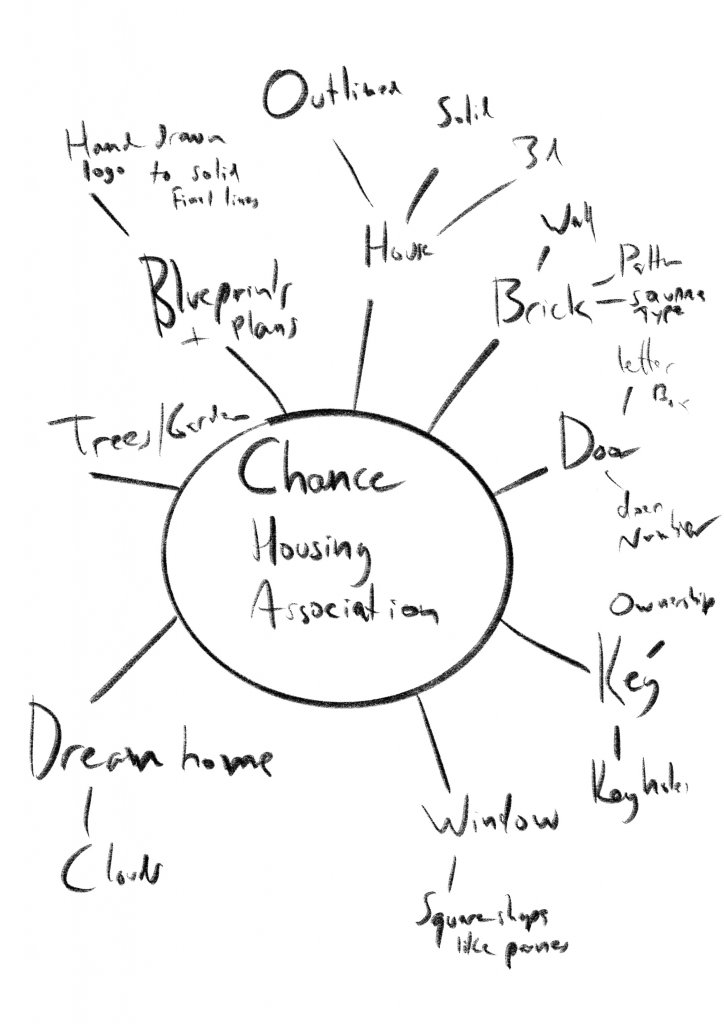 Outlined
Solid
3d
Hand drawn
logo to solid
Final lines
House
Wall
Blueprints
+ plans
Brick
square
type
letter
Box
Trees/Garden
Door
door
Number
Chance
Housing
Association
Ownership
Key
Key holes
Dream home
Clouds
Window
Square shaps
like panes